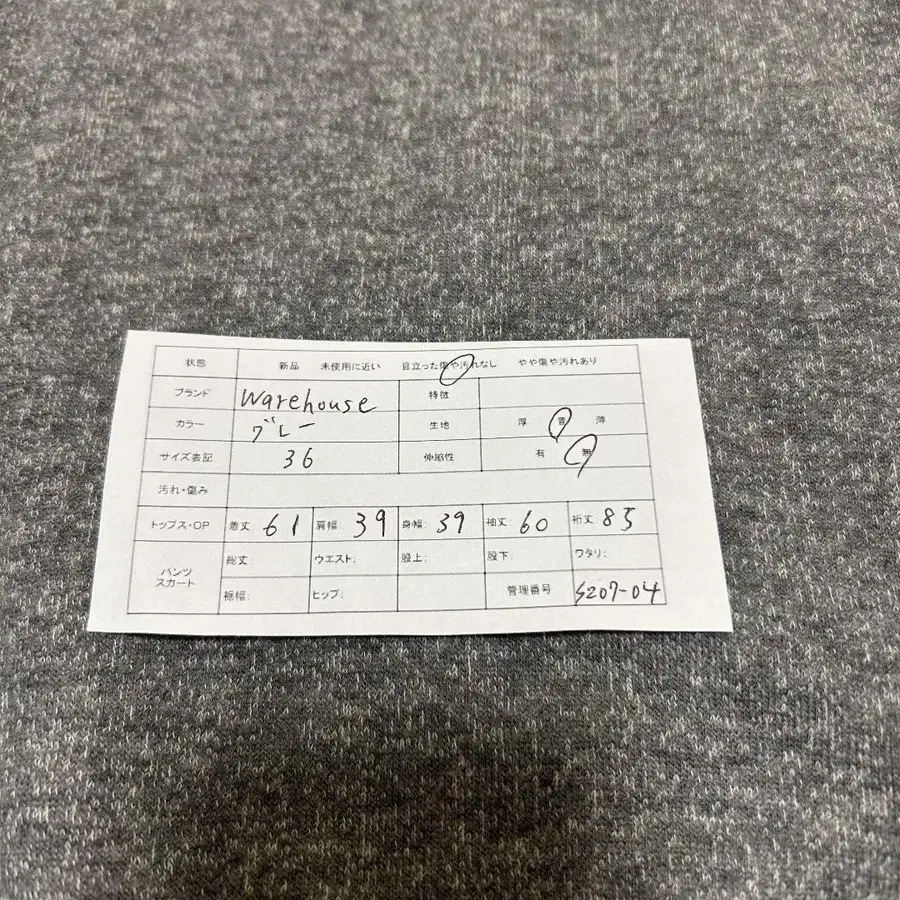 状態 新品 未使用に近い 目立った傷や汚れなし やや傷や汚れあり
ブランド Warehouse 特徴
カラー グレー 生地 厚 普 薄
サイズ表記 36 伸縮性 有 無
汚れ・傷み
トップス・OP 着丈: 61 肩幅: 39 身幅: 39 袖丈: 60 裄丈: 85
パンツ スカート 総丈: ウエスト: 股上: 股下: ワタリ:
裾幅: ヒップ: 管理番号 S207-04